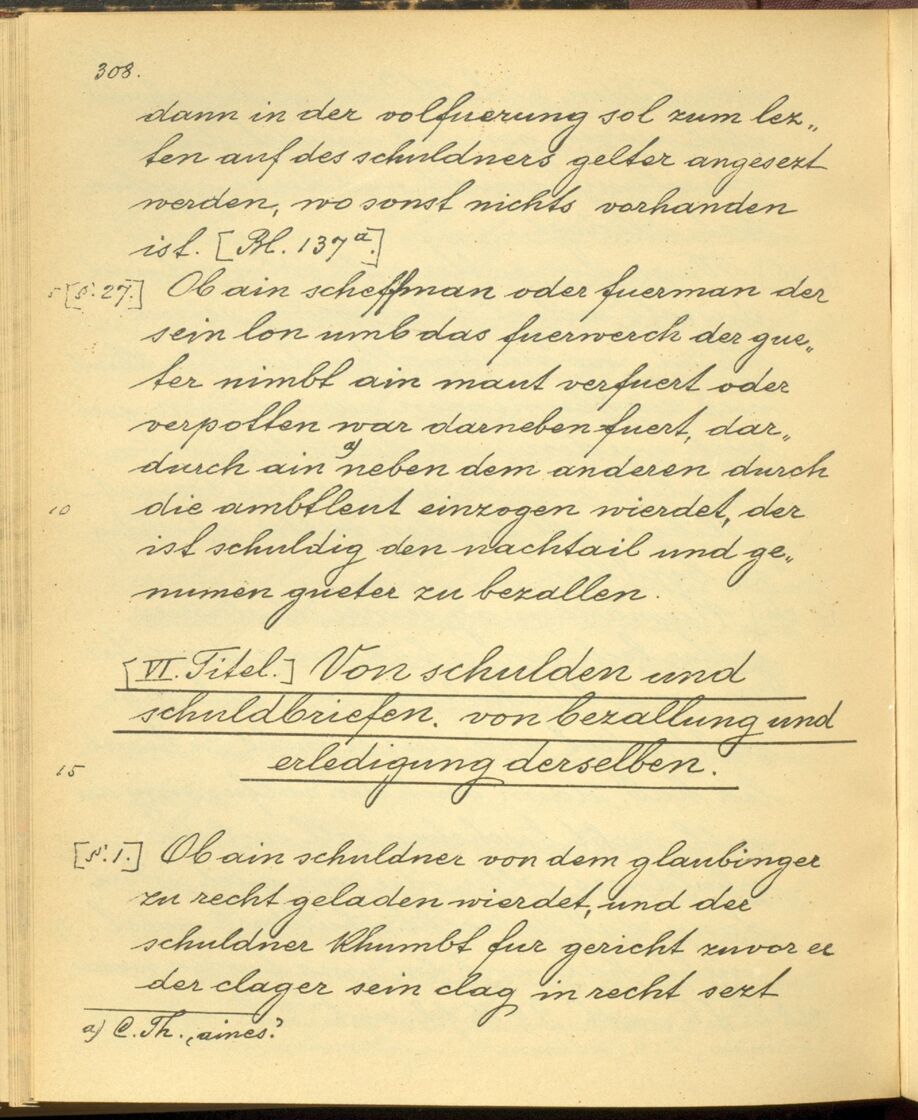 308.
dann in der volfuerung sol zum lez„
ten auf des schuldners gelter angesezt
werden, wo sonst nichts vorhanden
ist. [Bl. 137a.]
5 [§. 27.] Ob ain scheffman oder fuerman der
sein lon umb das fuerwerch der gue„
ter nimbt ain maut verfuert oder
verpotten war darneben fuert, dar„
durch ain a) neben dem anderen durch
10 die ambtleut einzogen wierdet, der
ist schuldig den nachtail und ge„
numen gueter zu bezallen.
[VI. Titel.] Von schulden und
schuldbriefen. von bezallung und
15 erledigung derselben.
[§. 1.] Ob ain schuldner von dem glaubinger
zu recht geladen wierdet, und der
schuldner khumbt fur gericht zuvor er
der clager sein clag in recht sezt
a) C. Th. ‚aines‘.